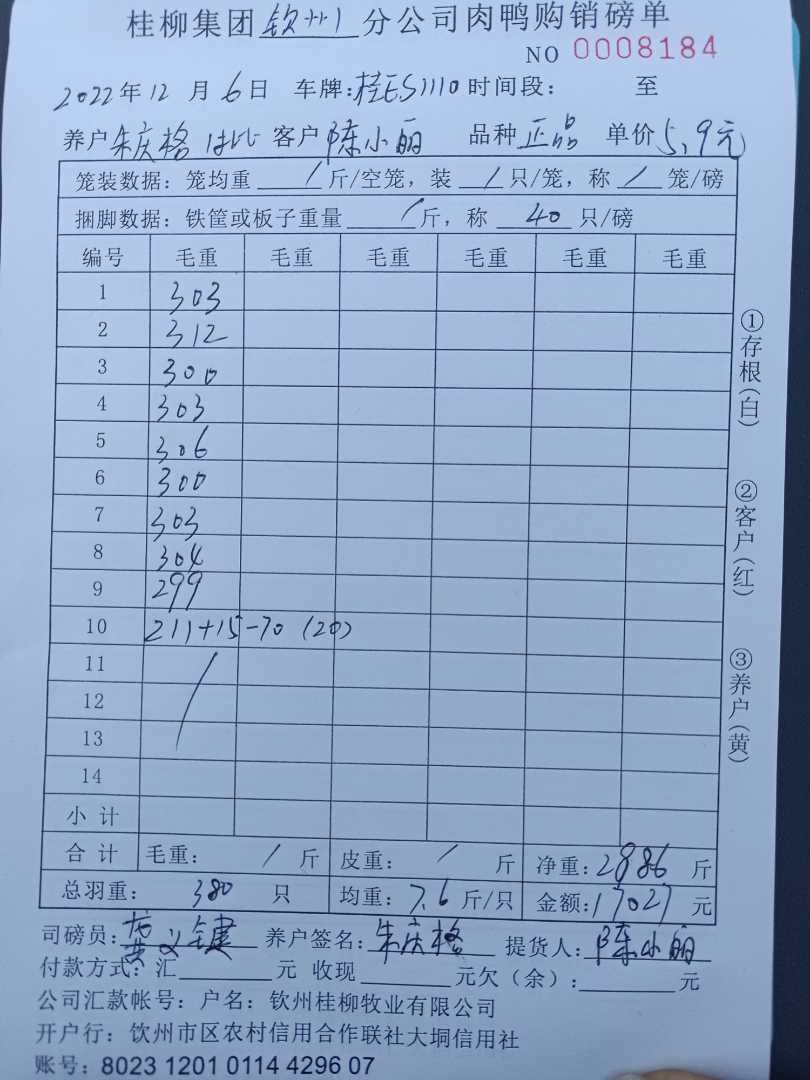 桂柳集团钦州分公司肉鸭购销磅单
NO 0008184
2022年12月6日 车牌:桂ES1110 时间段: 至
养户朱庆格 客户陈小丽 品种正品 单价5.9元
笼装数据:笼均重/斤/空笼,装/只/笼,称/笼/磅
捆脚数据:铁筐或板子重量/斤,称40只/磅
编号 毛重 毛重 毛重 毛重 毛重 毛重
1 303
2 312
3 300
4 303
5 306
6 300
7 303
8 304
9 299
10 211+15-70 (20)
11 /
12
13
14
小计
合计 毛重: / 斤 皮重: / 斤 净重:2886斤
总羽重: 380 只 均重:7.6斤/只 金额:17027元
司磅员:黄义键 养户签名:朱庆格 提货人:陈小丽
付款方式:汇 元 收现 元欠(余): 元
公司汇款帐号:户名:钦州桂柳牧业有限公司
开户行:饮州市区农村信用合作联社大垌信用社
账号:8023 1201 0114 4296 07
①存根(白)
②客户(红)
③养户(黄)